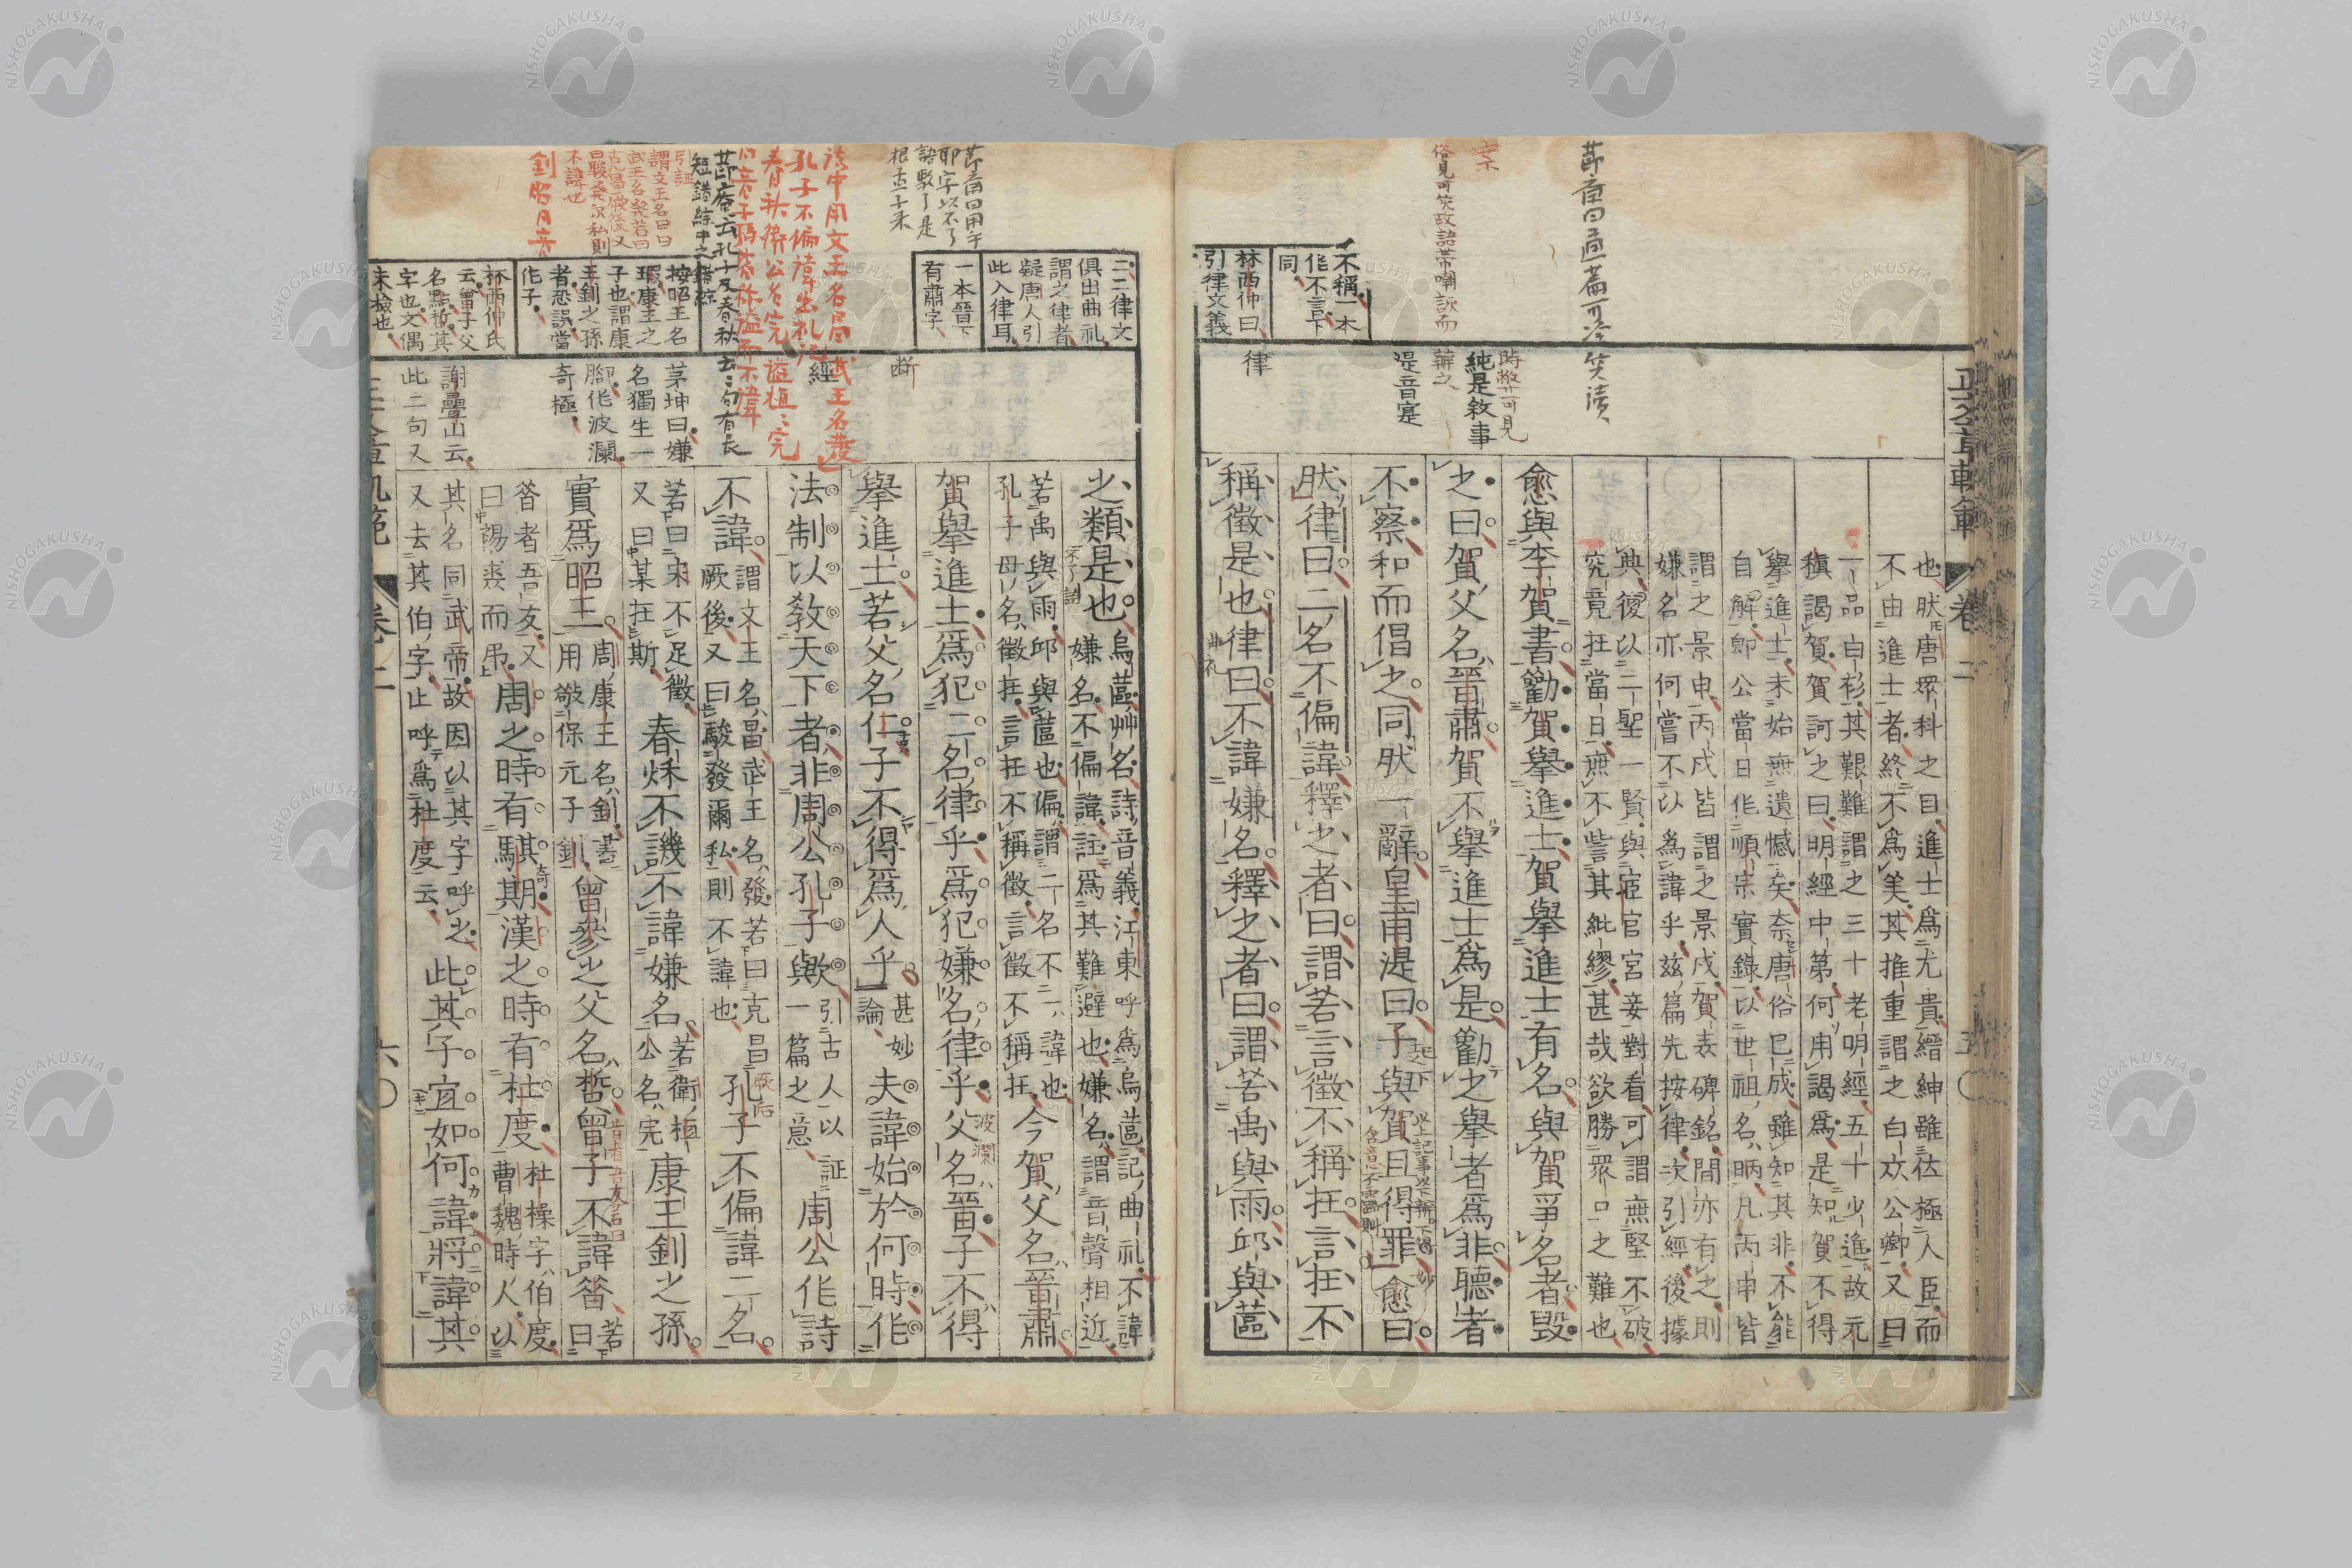 正文章軌範
卷二
五〇
也然唐眾科之目進士為尤貴縉紳雖位極人臣而
不由進士者終不為美其推重謂之白衣公卿又曰
一品白衫其艱難謂之三十老明經五十少進故元
稹謁賀賀訶之曰明經中第何用謁為是知賀不得
舉進士未始無遺憾矣奈唐俗已成雖知其非不能
自解即公當日作順宗實錄以世祖名昞凡丙申皆
謂之景申丙戌皆謂之景戌賀表碑銘間亦有之則
嫌名亦何嘗不以為諱乎茲篇先按律次引經後據
典復以二聖一賢與宦官宮妾對看可謂無堅不破
究竟在當日無不訾其紕繆甚哉欲勝眾口之難也
愈與李賀書勸賀舉進士賀舉進士有名與賀爭名者毀
之曰賀父名晉肅賀不舉進士為是勸之舉者為非聽者
不察和而倡之同然一辭皇甫湜曰子與賀且得罪愈曰
然律曰二名不偏諱釋之者曰謂若言徵不稱在言在不
稱徵是也律曰不諱嫌名釋之者曰謂若禹與雨邱與蓲
節庵曰通篇可冷笑讀
俗見可笑故語帶嘲詼而
辨之
純是敘事
湜音寔
律
不稱一本
作不言下
同
林西仲曰
引律文義
之類是也
烏蓲艸名詩音義江東呼為烏蓲記曲礼不諱
嫌名不偏諱註為其難避也嫌名謂音聲相近
若禹與雨邱與蓲也偏謂二名不一諱也
孔子母名徵在言在不稱徵言徵不稱在
今賀父名晉肅
賀舉進士為犯二名律乎為犯嫌名律乎父名晉子不得
舉進士若父名仁子不得為人乎
甚妙
論
夫諱始於何時作
法制以教天下者非周公孔子歟
引古人以証
一篇之意
周公作詩
不諱
謂文王名昌武王名發若曰克昌
厥後又曰駿發爾私則不諱也
孔子不偏諱二名
若曰宋不足徵
又曰某在斯
春秋不譏不諱嫌名
若衛桓
公名完
康王釗之孫
實為昭王
周康王名釗書
用敬保元子釗
曾參之父名晳曾子不諱
若
曰
昔者吾友又
曰裼裘而弔
周之時有騏期漢之時有杜度
杜操字伯度
曹魏時人以
其名同武帝故因以其字呼之
又去其伯字止呼為杜度云
此其子宜如何諱將諱其
六〇
節庵曰用乎
耶字以不了
語默了是
根查千来
二二律文
俱出曲礼
謂之律者
疑唐人引
此入律耳
一本晉下
有肅字
断
經
詩中用文王名昌武王名發
孔子不偏諱出礼記
節庵云孔子及春秋
短錯綜中之錯綜
按昭王名
瑕康王之
子也謂康
王釗之孫
者恐誤當
作子
林西仲氏
云曾子父
名點晳其
字也文偶
未檢也
茅坤曰嫌
名獨生一
腳作波瀾
奇極
謝疊山云
此二句又
釗昭月音
波瀾